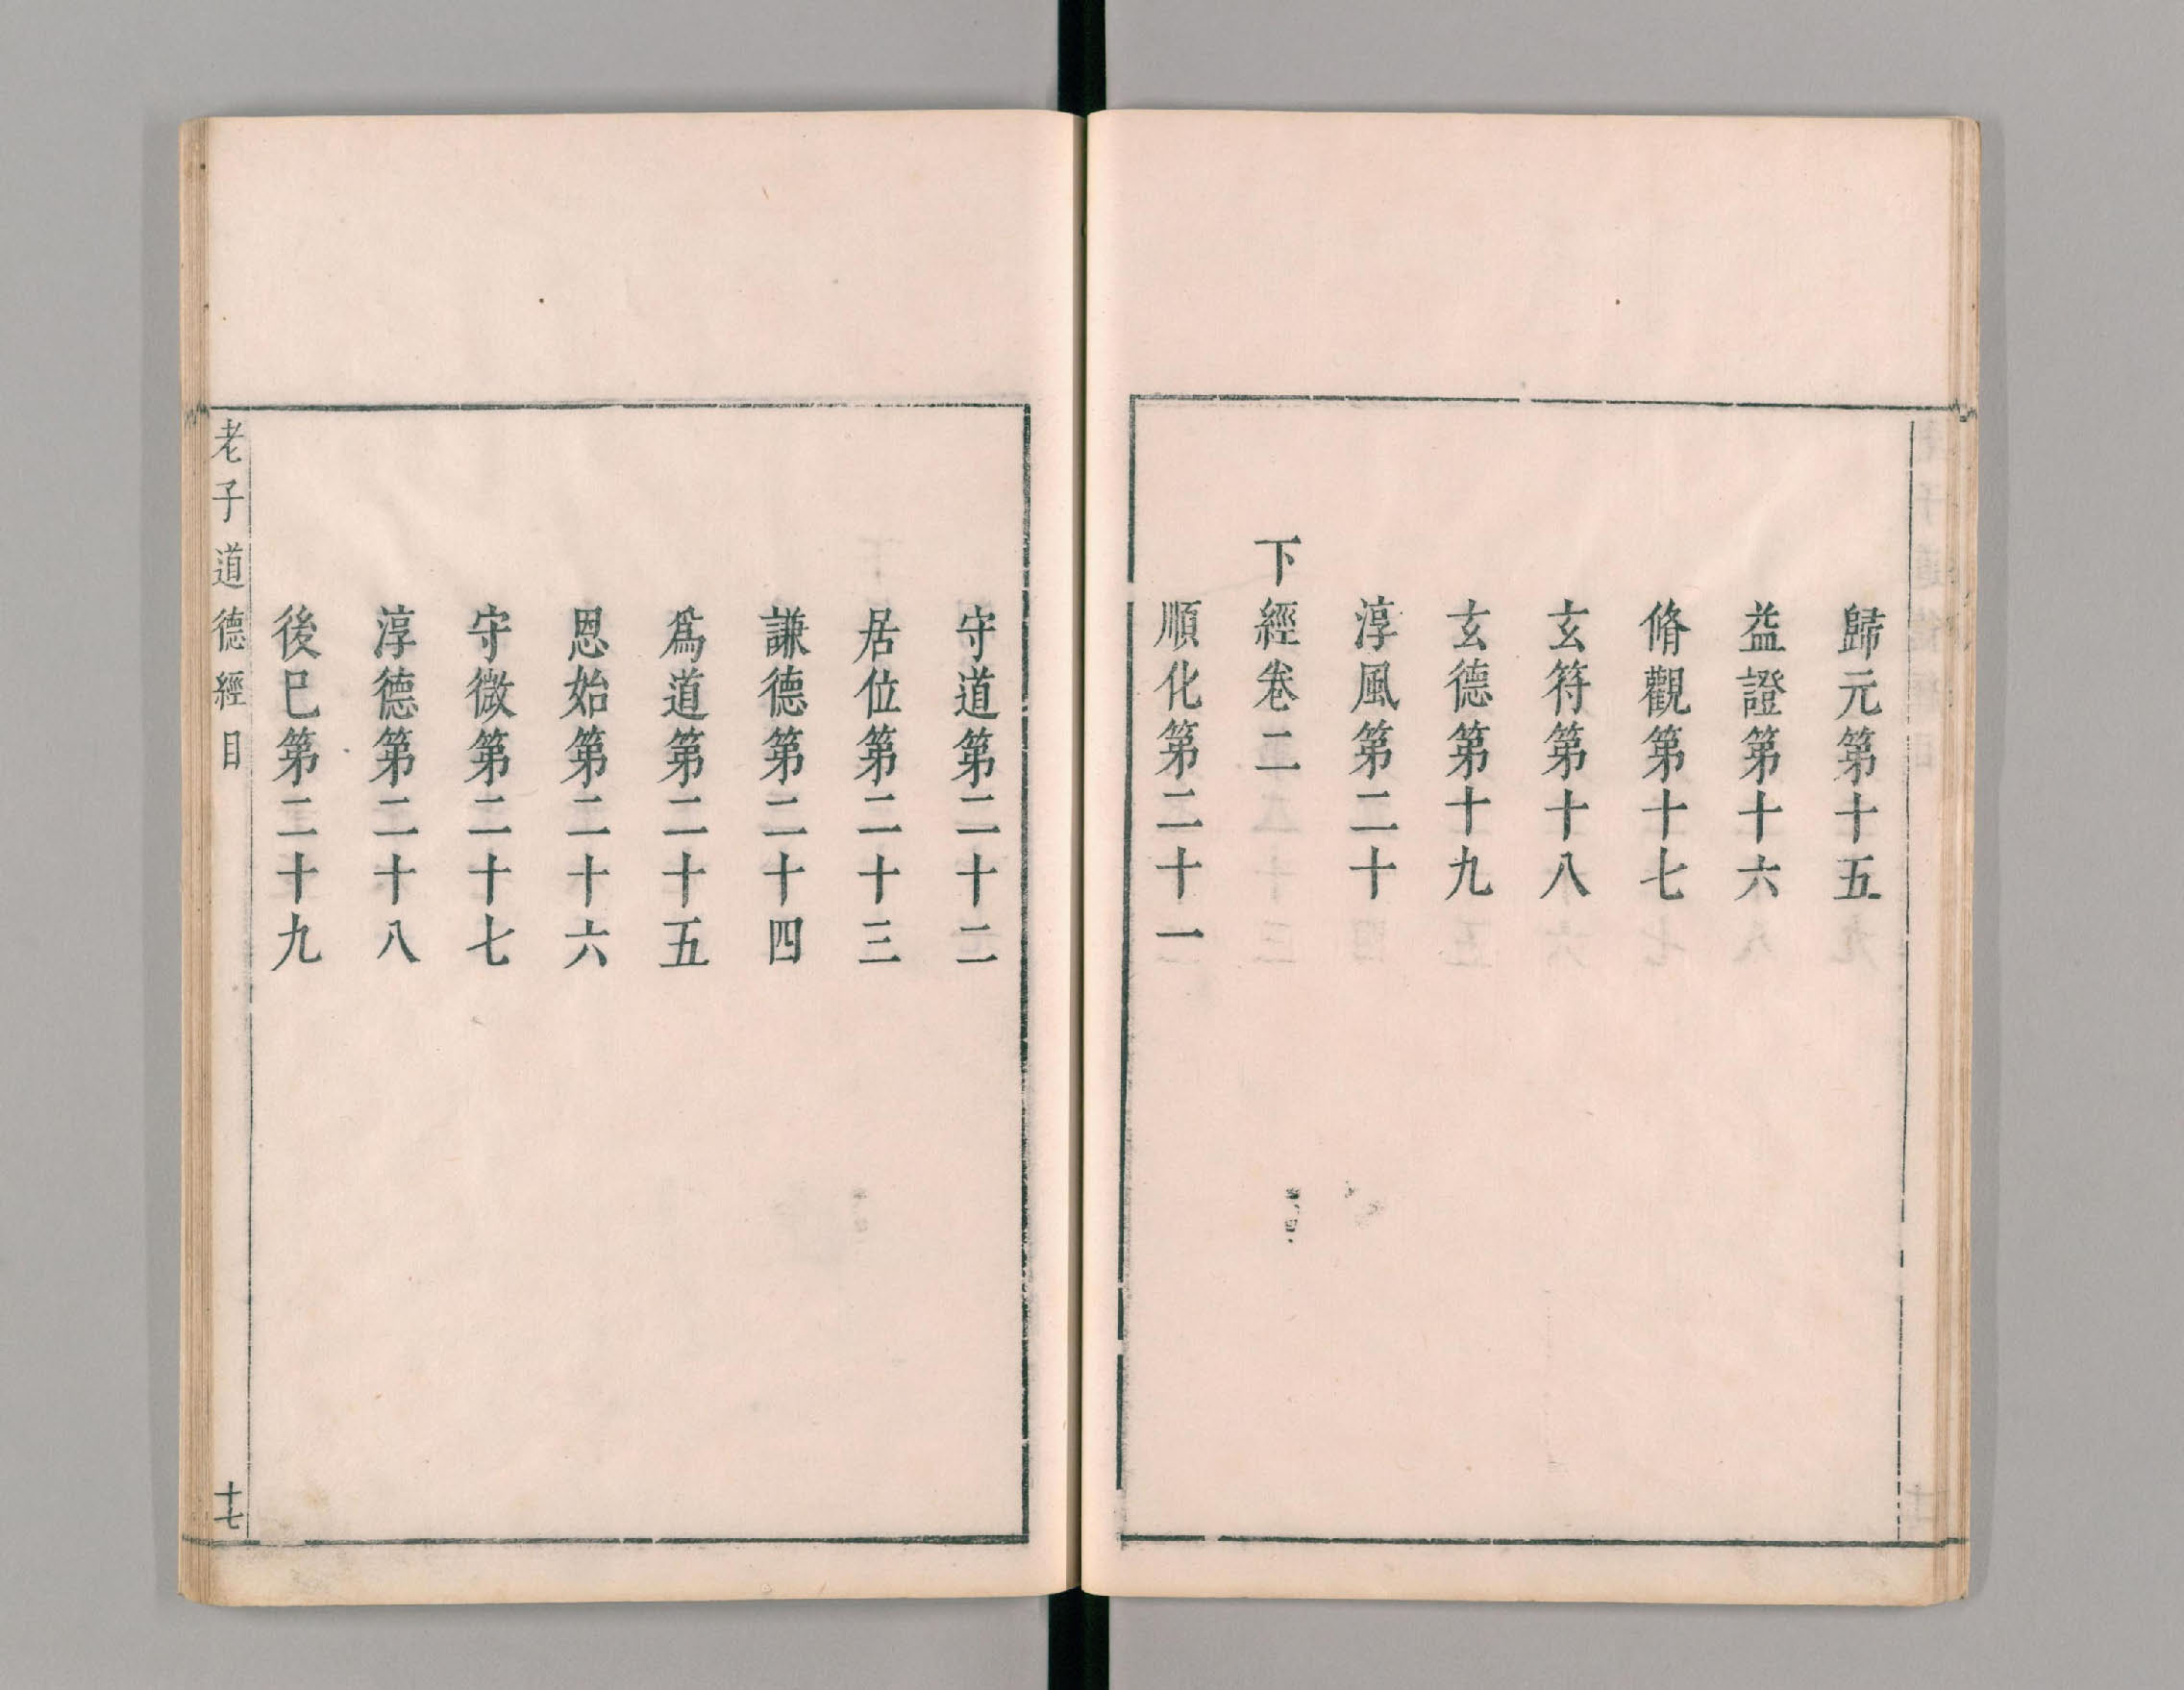 歸元第十五
益證第十六
脩觀第十七
玄符第十八
玄德第十九
淳風第二十
下經卷二
順化第二十一
守道第二十二
居位第二十三
謙德第二十四
爲道第二十五
恩始第二十六
守微第二十七
淳德第二十八
後巳第二十九
老子道德經 目 十七